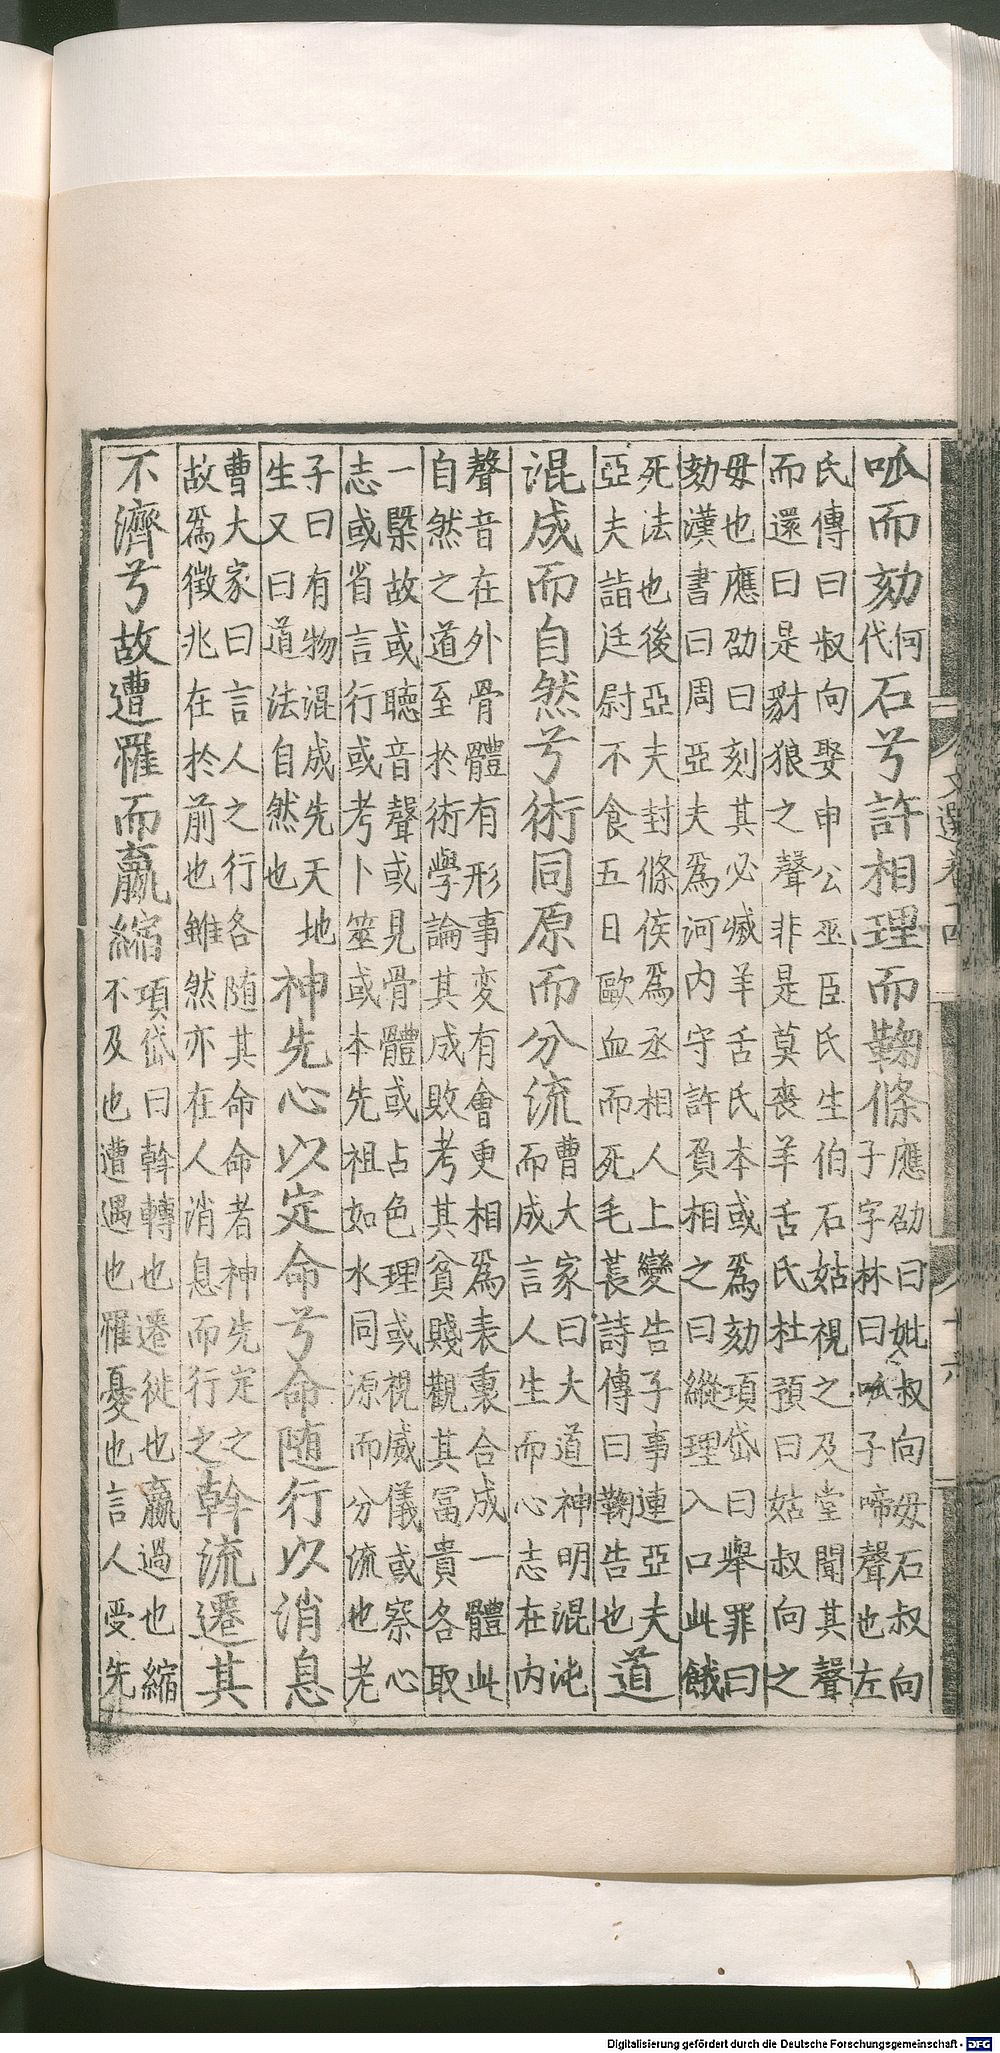 呱而劾何代石兮許相理而鞠條應劭曰妣叔向母石叔向
子字林曰呱子啼聲也左
氏傳曰叔向娶申公巫臣氏生伯石姑視之及堂聞其聲
而還曰是豺狼之聲非是莫喪羊舌氏杜預曰姑叔向之
母也應劭曰刻其必滅羊舌氏本或為劾項岱曰舉罪曰
劾漢書曰周亞夫為河內守許負相之曰縱理入口此餓
死法也後亞夫封條侯為丞相人上變告子事連亞夫
亞夫詣廷尉不食五日歐血而死毛萇詩傳曰鞠告也道
混成而自然兮術同原而分流曹大家曰大道神明混沌
而成言人生而心志在內
聲音在外骨體有形事変有會更相為表裏合成一體此
自然之道至於術學論其成敗考其貧賤觀其冨貴各取
一槩故或聽音聲或見骨體或占色理或視威儀或察心
志或省言行或考卜筮或本先祖如水同源而分流也老
子曰有物混成先天地
生又曰道法自然也神先心以定命兮命随行以消息
曹大家曰言人之行各随其命命者神先定之
故為徵兆在於前也雖然亦在人消息而行之斡流遷其
不濟兮故遭罹而贏縮項岱曰斡轉也遷徙也贏過也縮
不及也遭遇也罹憂也言人受先
文選卷十四
十六
Digitalisierung gefördert durch die Deutsche Forschungsgemeinschaft - DFG